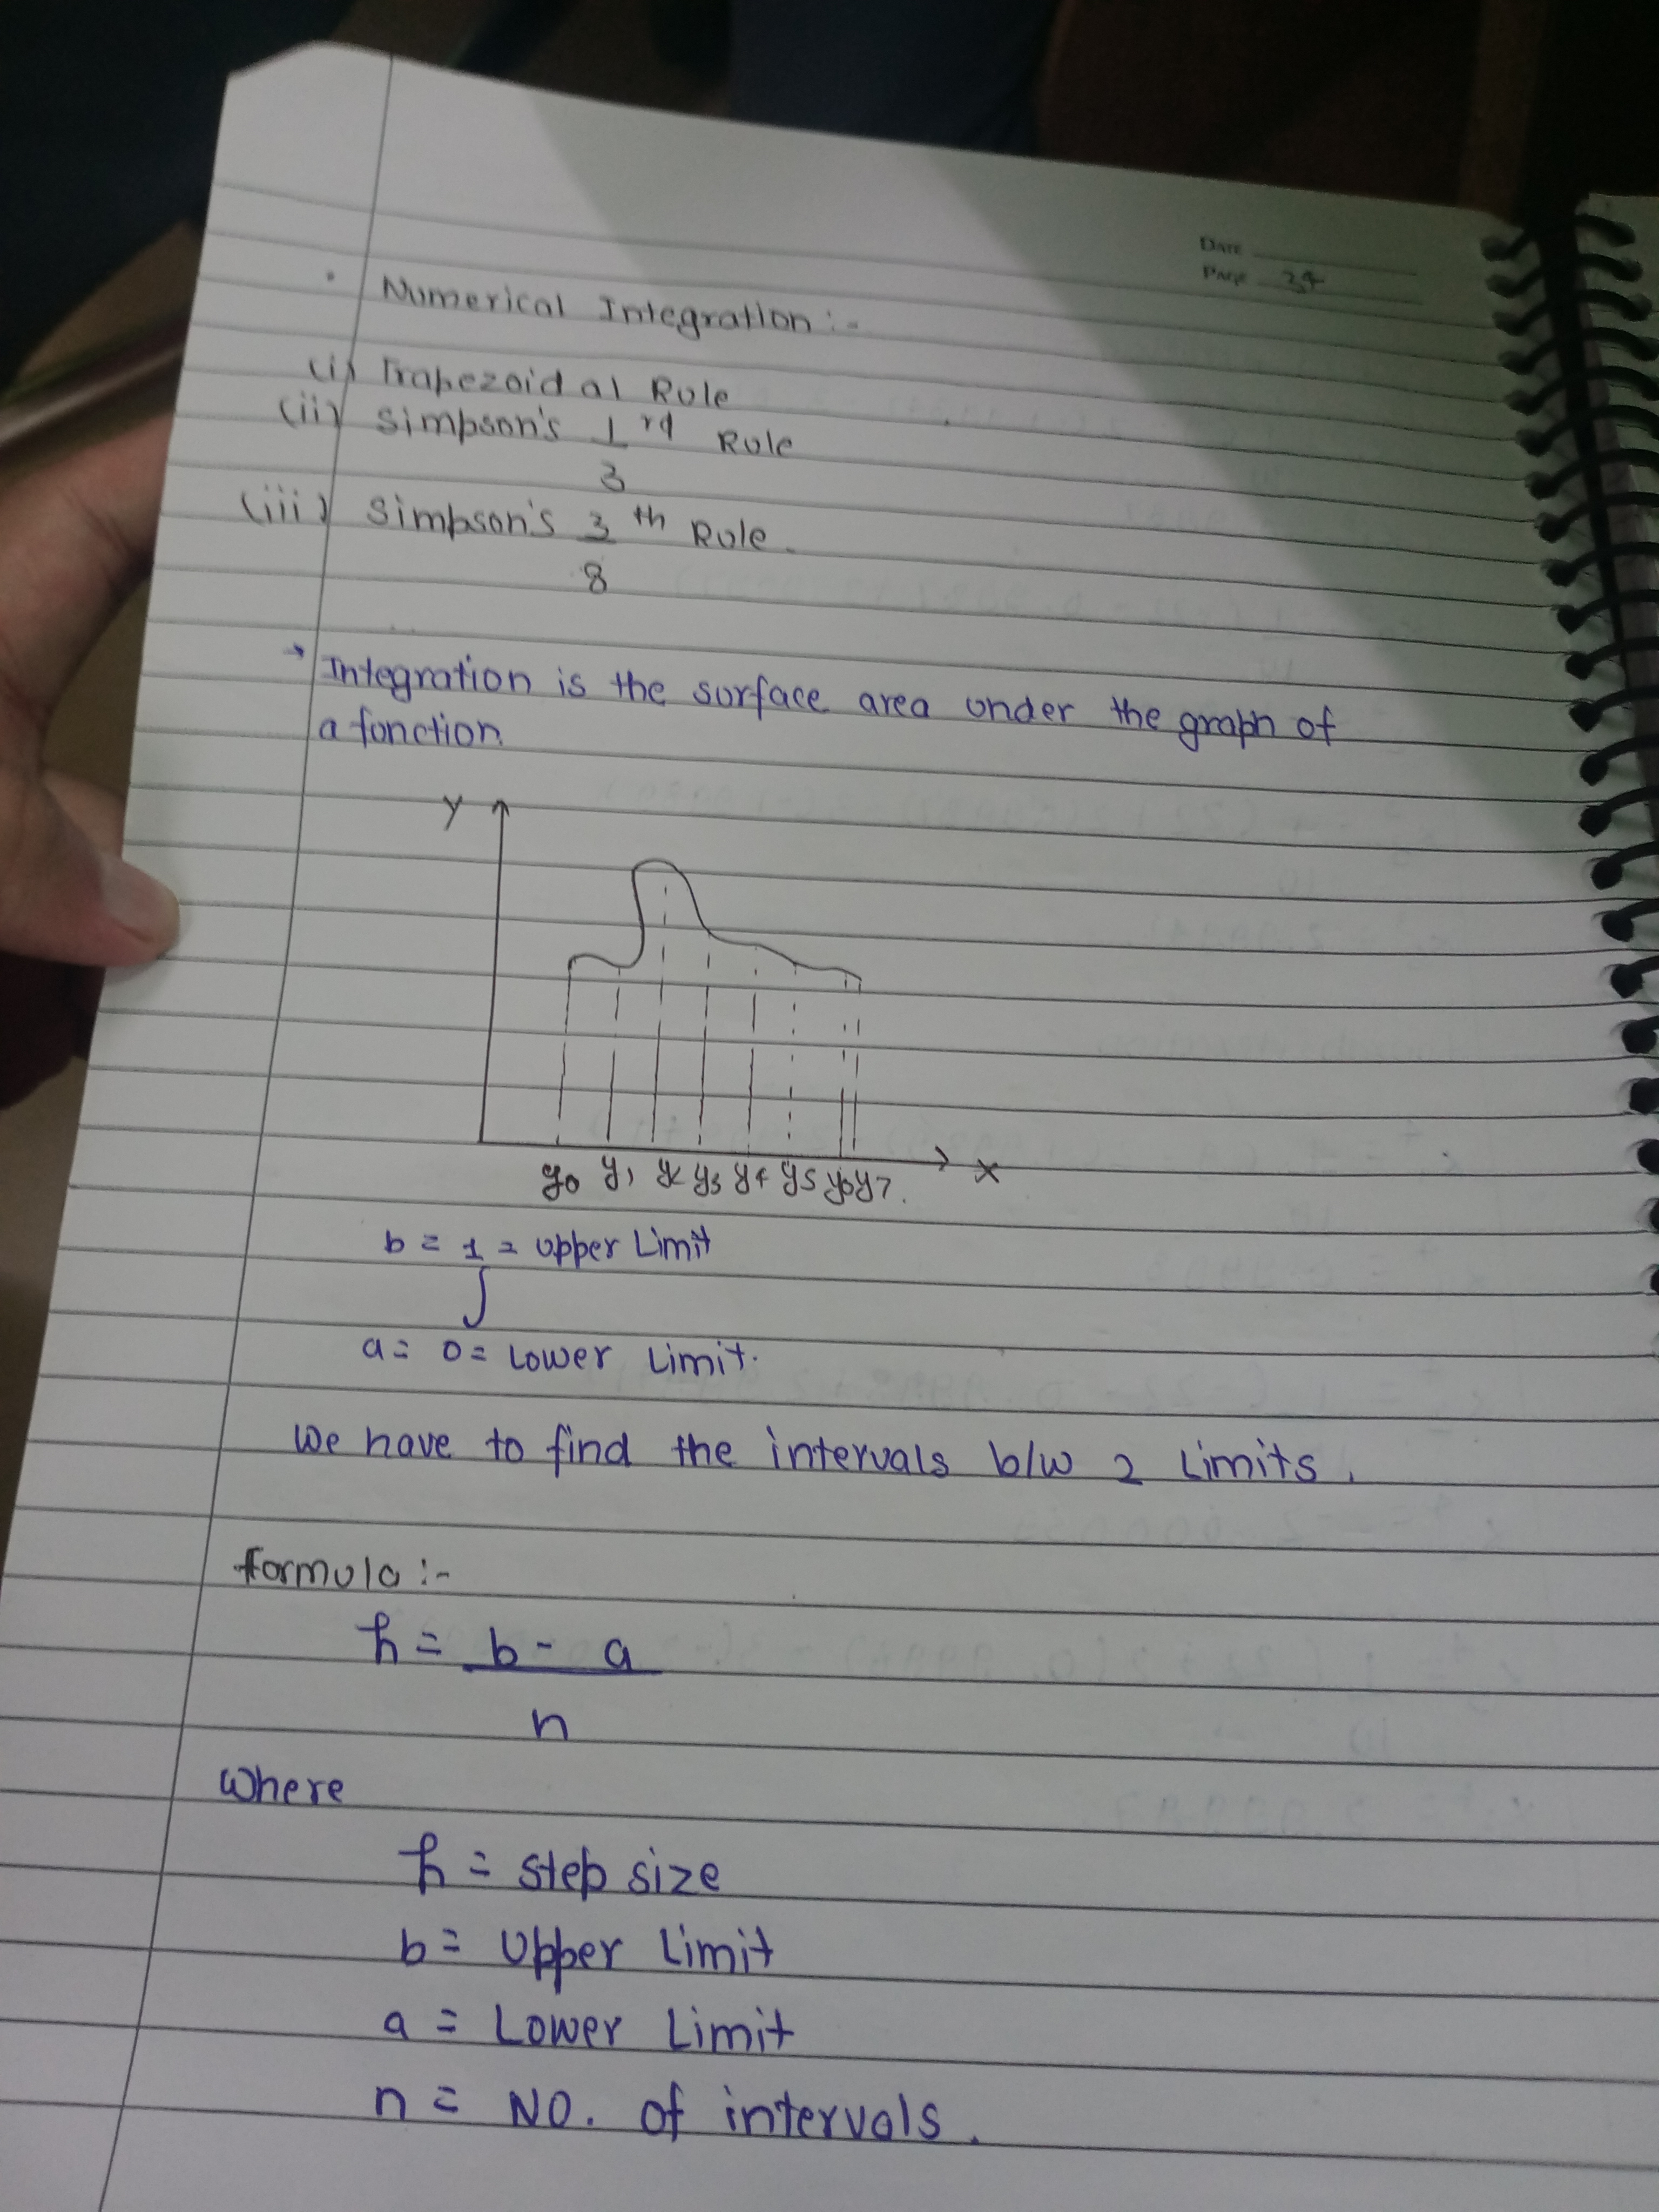 DATE
PAGE 34
Numerical Integration :-
(i) Trapezoidal Rule
(ii) Simpson's 1/3 rd Rule
(iii) Simpson's 3/8 th Rule.
→ Integration is the surface area under the graph of
a function.
Y
X
y0 y1 y2 y3 y4 y5 y6 y7.
b = 1 = Upper Limit
∫
a = 0 = Lower Limit.
We have to find the intervals b/w 2 Limits.
Formula :-
h = b - a
n
Where
h = step size
b = Upper Limit
a = Lower Limit
n = NO. of intervals.